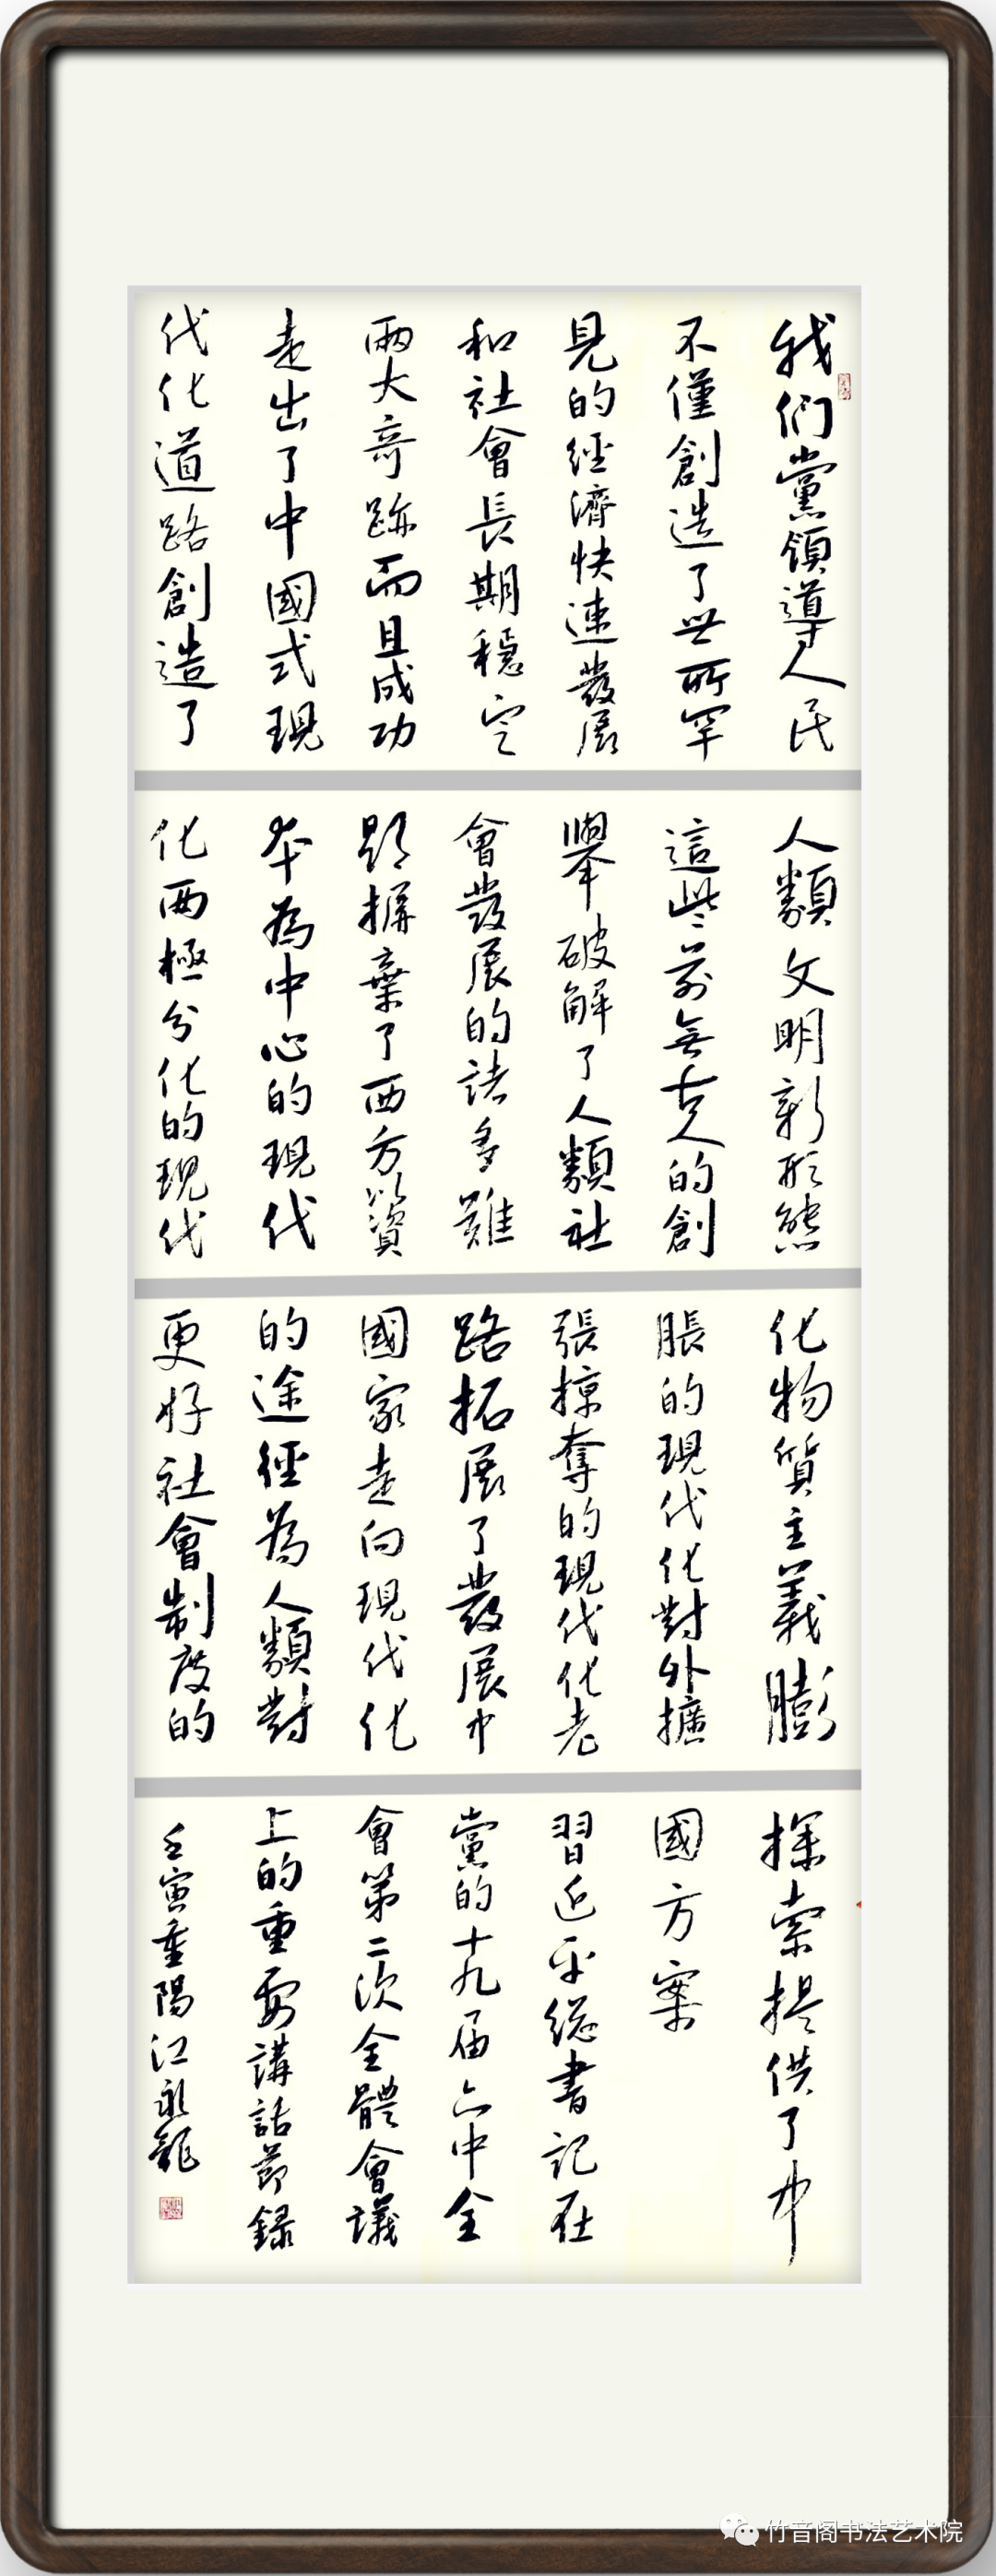 我们黨領導人民
不僅創造了世所罕
見的經濟快速發展
和社會長期穩定
兩大奇跡而且成功
走出了中國式現
代化道路創造了
人類文明新形態
這些前無古人的創
舉破解了人類社
會發展的諸多難
題摒棄了西方以資
本為中心的現代
化兩極分化的現代
化物質主義膨
脹的現代化對外擴
張掠奪的現代化老
路拓展了發展中
國家走向現代化
的途徑為人類對
更好社會制度的
探索提供了中
國方案
習近平總書記在
黨的十九届六中全
會第二次全體會議
上的重要講話節録
壬寅重陽江永龍
竹音阁书法艺术院